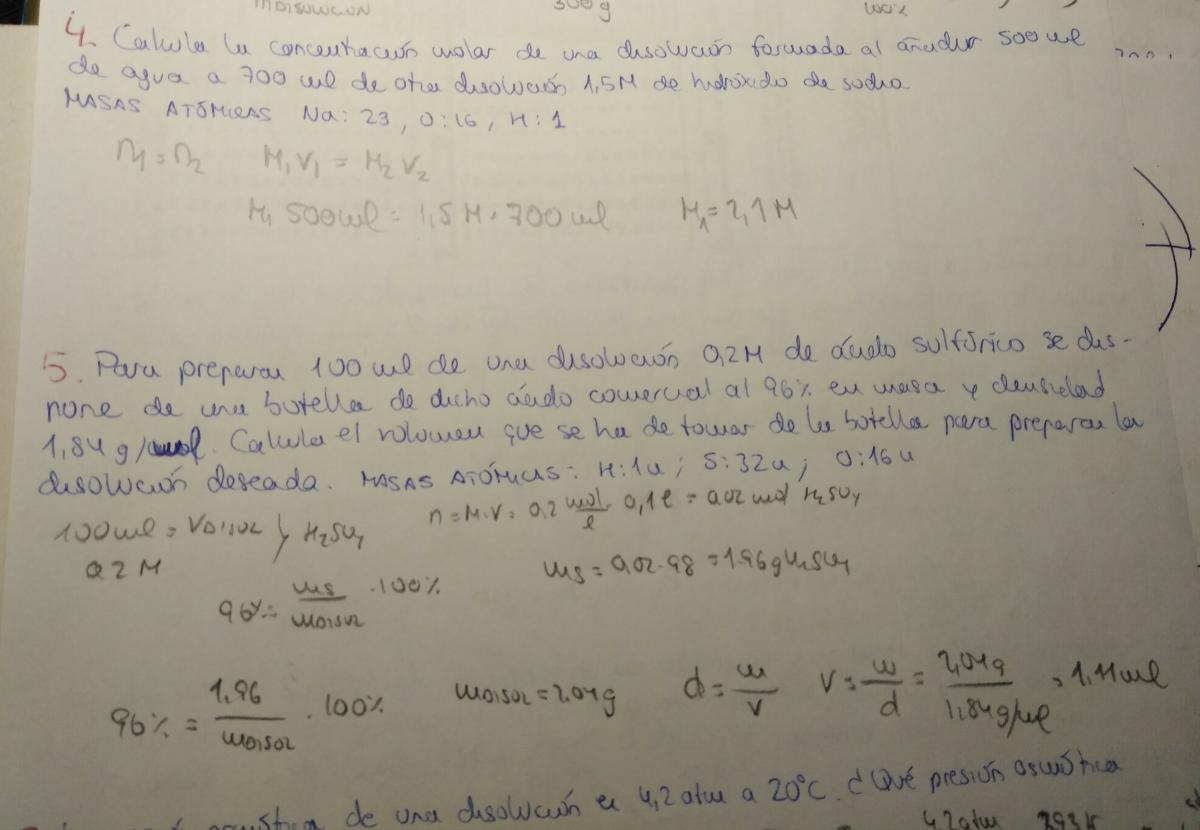 MDISOLUCION 300g 100%
4. Calcula la concentración molar de una disolución formada al añadir 500 ml
de agua a 700 ml de otra disolución 1,5M de hidróxido de sodio.
MASAS ATÓMICAS Na: 23, O:16, H:1
n1 = n2 M1V1 = M2V2
M1 500ml = 1,5M · 700ml M1 = 2,1M
5. Para preparar 100 ml de una disolución 0,2M de ácido sulfúrico se dis-
pone de una botella de dicho ácido comercial al 96% en masa y densidad
1,84 g/ml. Calcula el volumen que se ha de tomar de la botella para preparar la
disolución deseada. MASAS ATÓMICAS: H:1u; S:32u; O:16u
100ml = VDISOL } H2SO4 n = M·V = 0,2 mol/l · 0,1l = 0,02 mol H2SO4
0,2M ms = 0,02·98 = 1,96g H2SO4
96% = ms/mDISOL · 100%
96% = 1,96/mDISOL · 100% mDISOL = 2,04g d = m/V V = m/d = 2,04g/1,84g/ml = 1,11ml
de una disolución es 4,2 atm a 20°C. ¿Qué presión osmótica
4,2 atm 293K